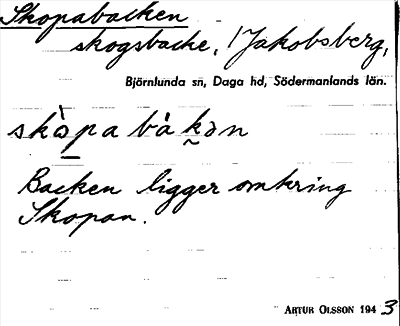 Skopabacken
skogsbacke, / Jakobsberg,
Björnlunda sn, Daga hd, Södermanlands län.
skò̠pa bàk̰ən
Backen ligger omkring
Skopan.
ARTUR OLSSON 1943